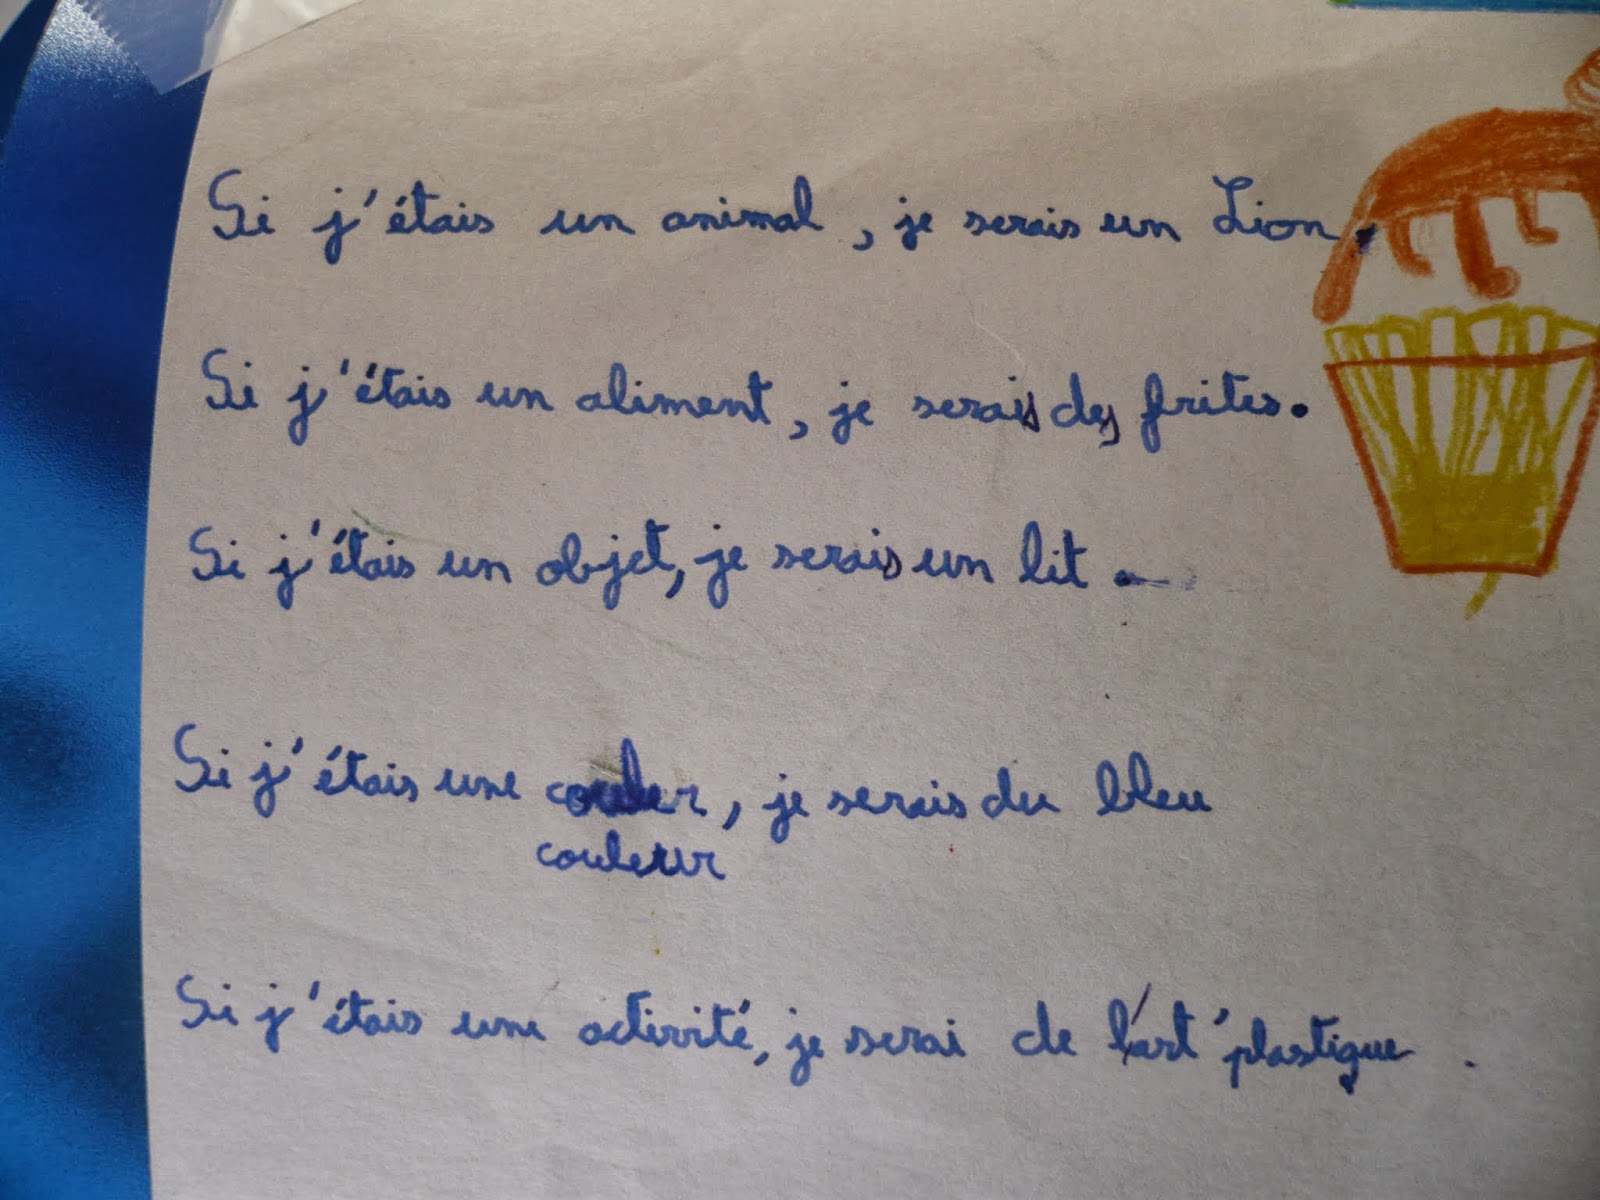 Si j'étais un animal, je serais un Lion.
Si j'étais un aliment, je serais des frites.
Si j'étais un objet, je serais un lit.
Si j'étais une couler, je serais du bleu
couleur
Si j'étais une activité, je serai de l'art' plastique.